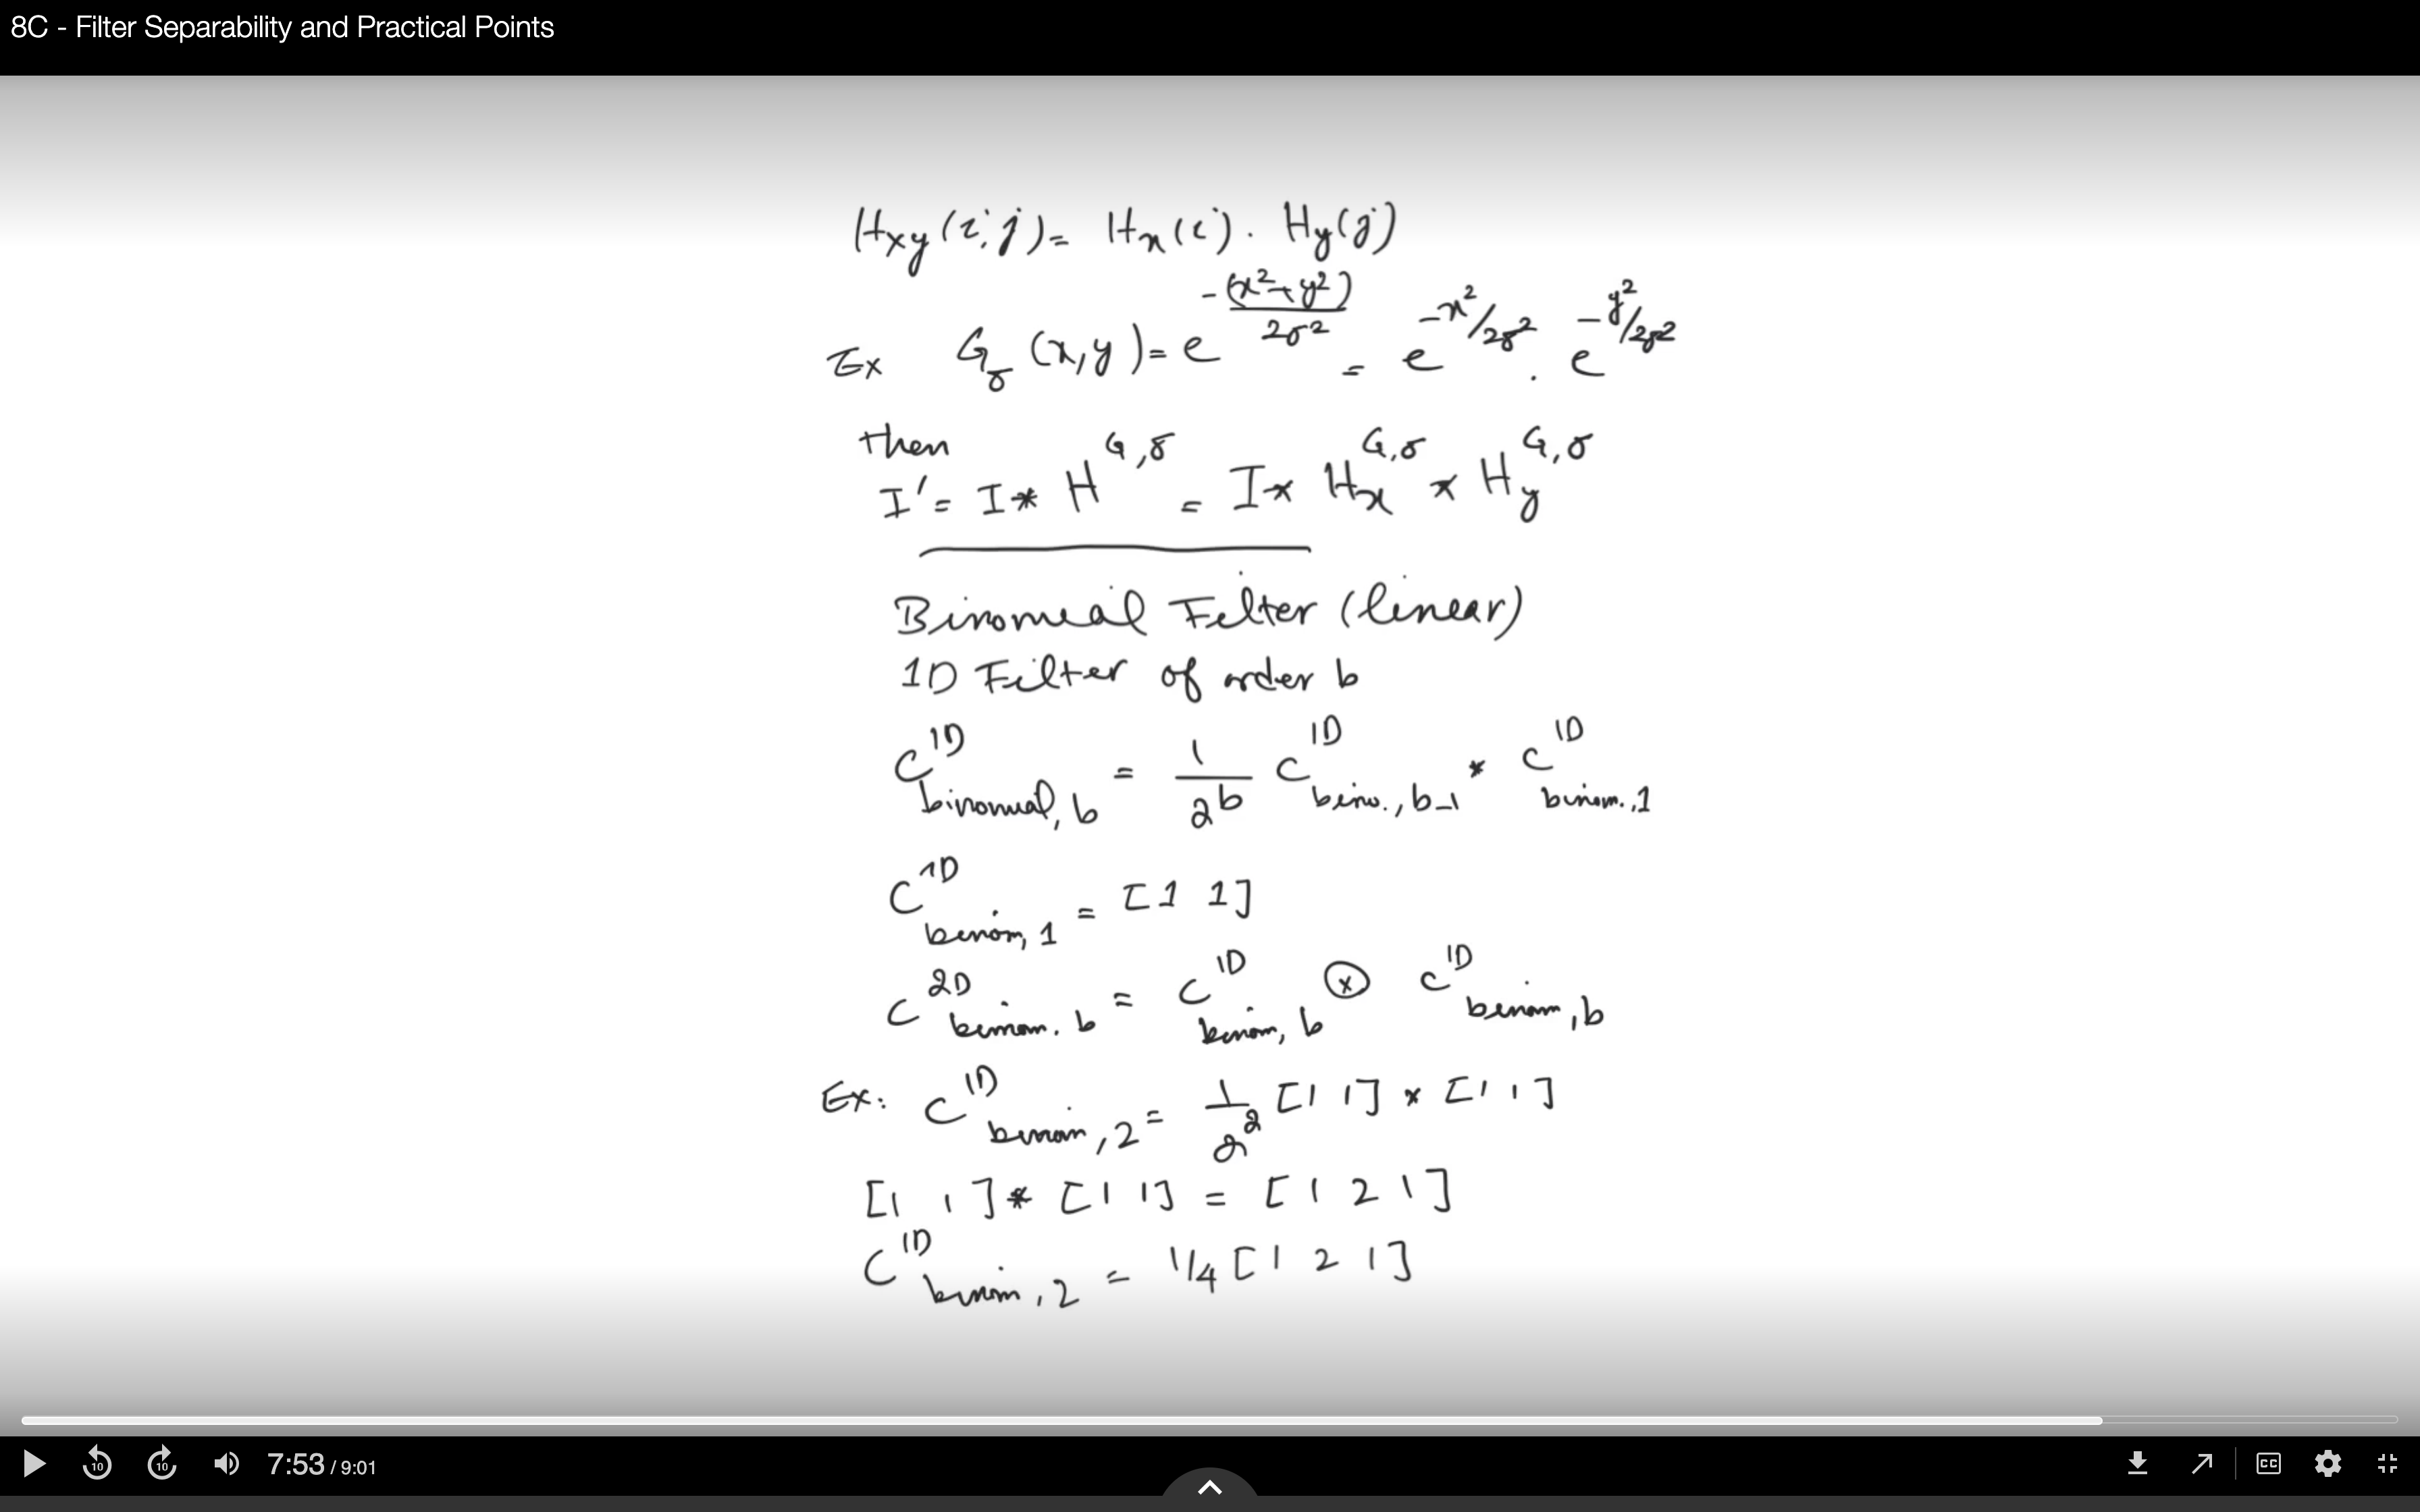 8C - Filter Separability and Practical Points
Hxy(i,j) = Hx(i) · Hy(j)
Ex Gσ(x,y) = e^(-(x²+y²)/2σ²) = e^(-x²/2σ²) · e^(-y²/2σ²)
then
I' = I * H^(G,σ) = I * Hx^(G,σ) * Hy^(G,σ)
Binomial Filter (linear)
1D Filter of order b
C^(1D) binomial, b = 1/2^b C^(1D) bino., b-1 * C^(1D) binom., 1
C^(1D) binom, 1 = [1 1]
C^(2D) binom. b = C^(1D) binom, b ⊗ C^(1D) binom, b
Ex: C^(1D) binom, 2 = 1/2² [1 1] * [1 1]
[1 1] * [1 1] = [1 2 1]
C^(1D) binom, 2 = 1/4 [1 2 1]
10 10 7:53 / 9:01 CC